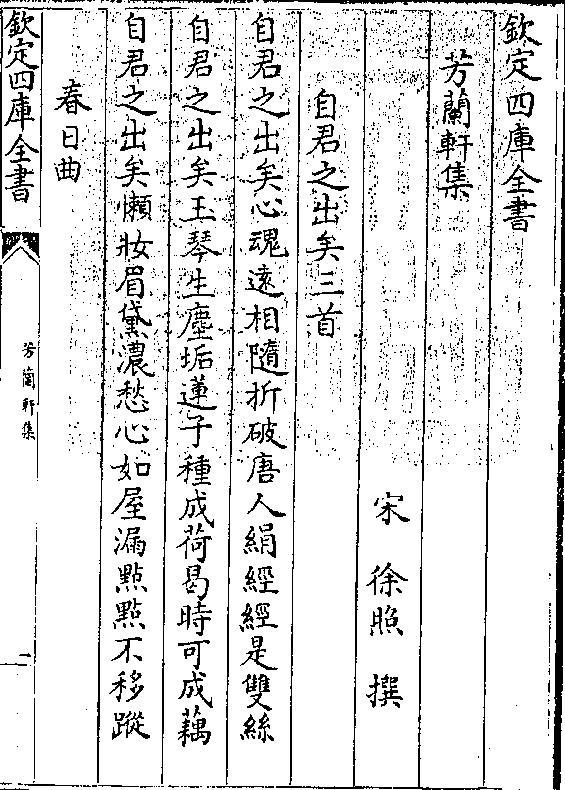 欽定四庫全書
芳蘭軒集
宋 徐照 撰
自君之出矣三首
自君之出矣心魂遠相隨折破唐人絹經經是雙絲
自君之出矣玉琴生塵垢蓮子種成荷曷時可成藕
自君之出矣懶妝眉黛濃愁心如屋漏點點不移蹤
春日曲
欽定四庫全書
芳蘭軒集
一